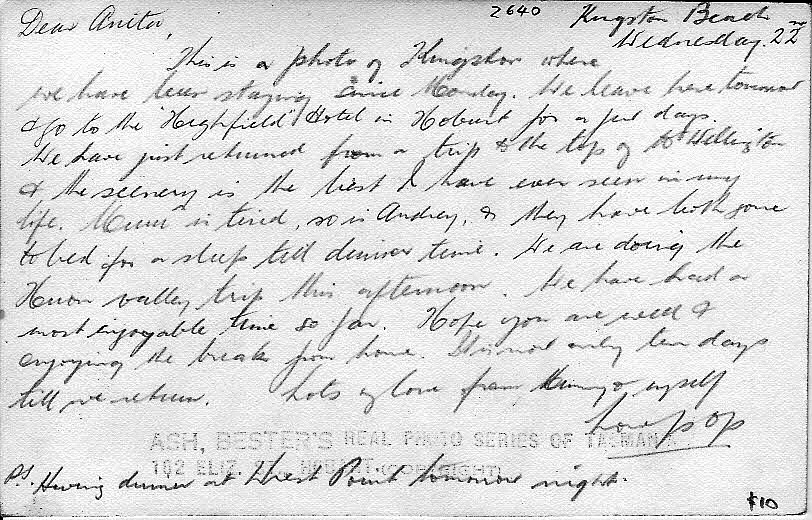 2640 Kingston Beach
Dear Anita, Wednesday. 22nd
This is a photo of Kingston where
we have been staying since Monday. We leave here tomorrow
& go to the "Highfield" Hotel in Hobart for a few days.
We have just returned from a trip to the top of Mt Wellington
& the scenery is the best I have ever seen in my
life. Mum is tired, so is Audrey, & they have both gone
to bed for a sleep till dinner time. We are doing the
Huon valley trip this afternoon. We have had a
most enjoyable time so far. Hope you are well &
enjoying the break from home. It is not only ten days
till we return. Lots of love from Mummy & myself
Pop
ASH, BESTER'S REAL PHOTO SERIES OF TASMANIA
102 ELIZ. ST., HOBART (COPYRIGHT)
P.S. Having dinner at Wrest Point tomorrow night.
$10